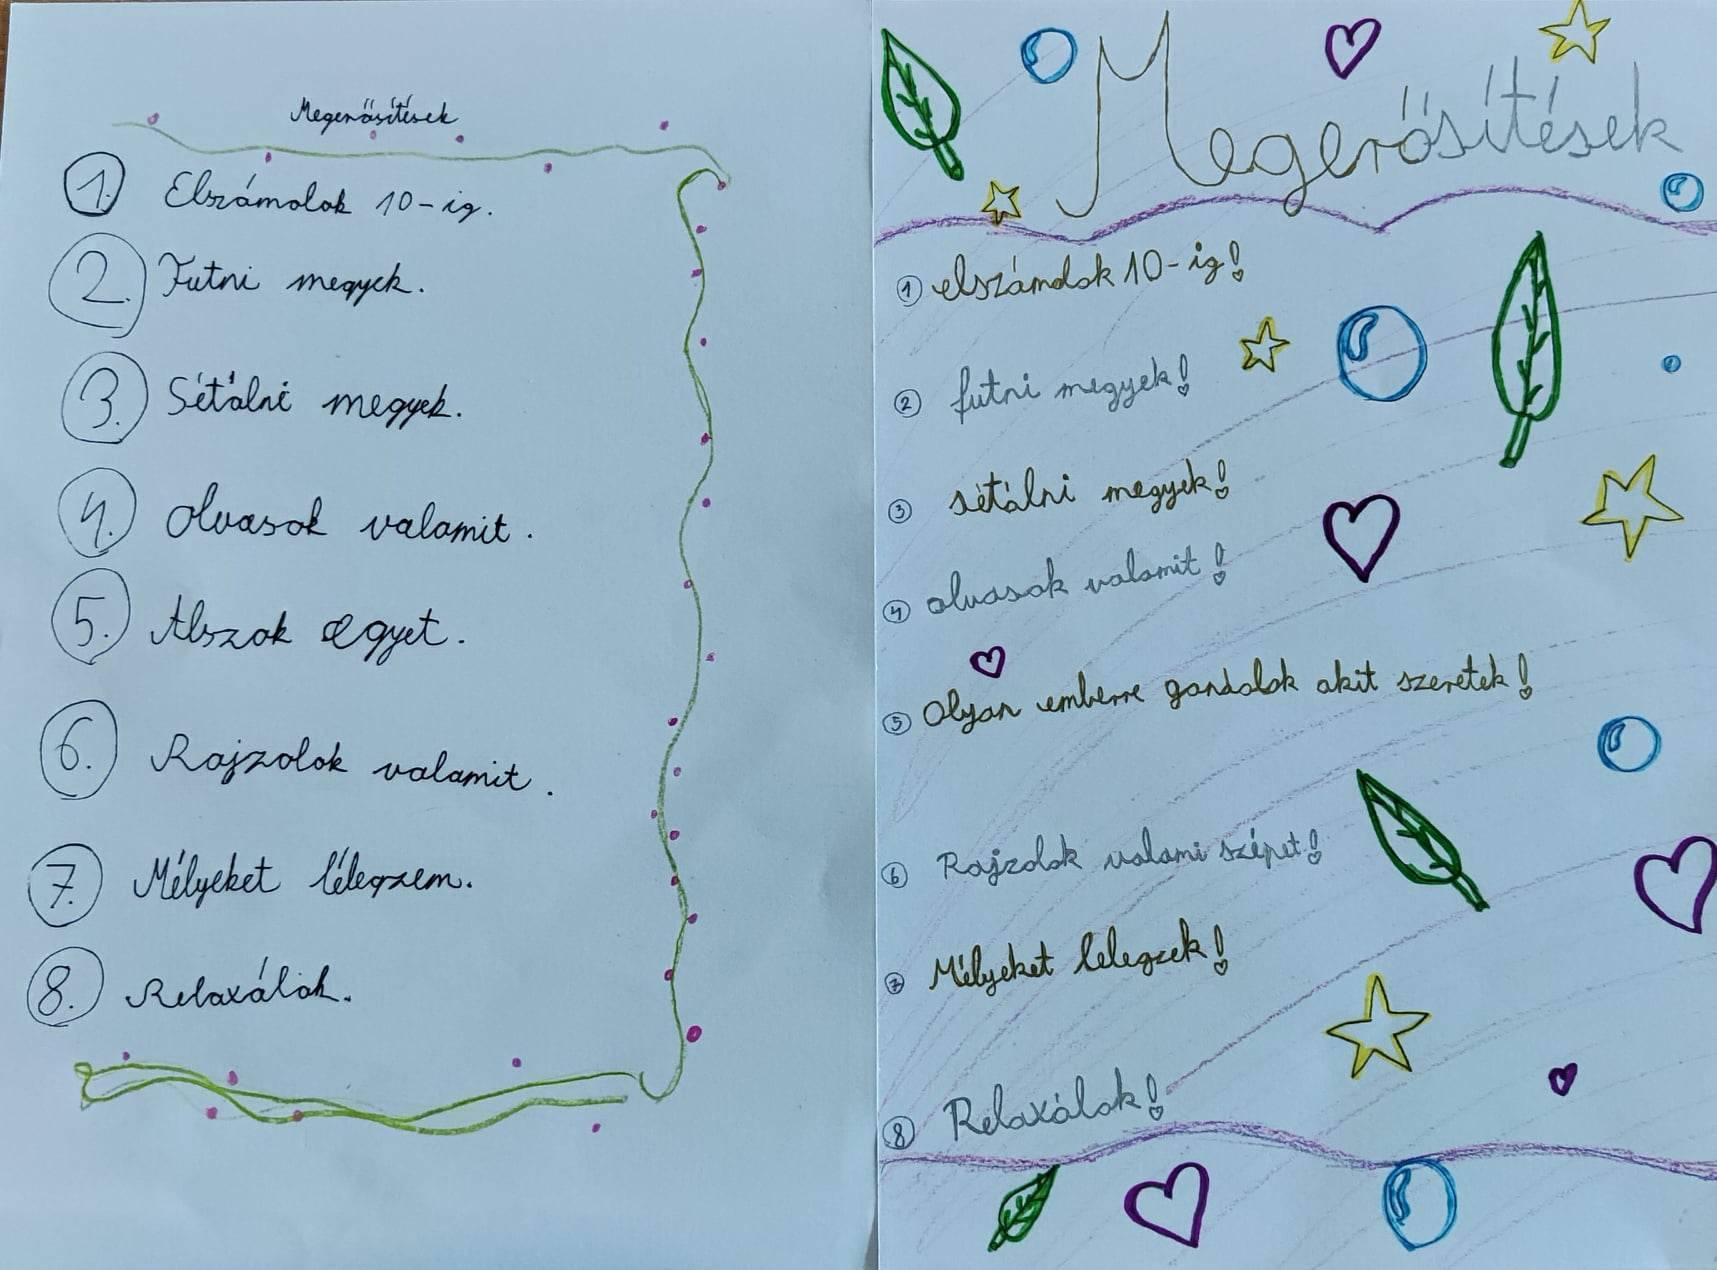 Megerősítések
1. Elszámolok 10-ig.
2. Futni megyek.
3. Sétálni megyek.
4. Olvasok valamit.
5. Alszok egyet.
6. Rajzolok valamit.
7. Mélyeket lélegzem.
8. Relaxálok.
Megerősítések
1 elszámolok 10-ig!
2 futni megyek!
3 sétálni megyek!
4 olvasok valamit!
5 Olyan emberre gondolok akit szeretek!
6 Rajzolok valami szépet!
7 Mélyeket lelegzek!
8 Relaxálok!